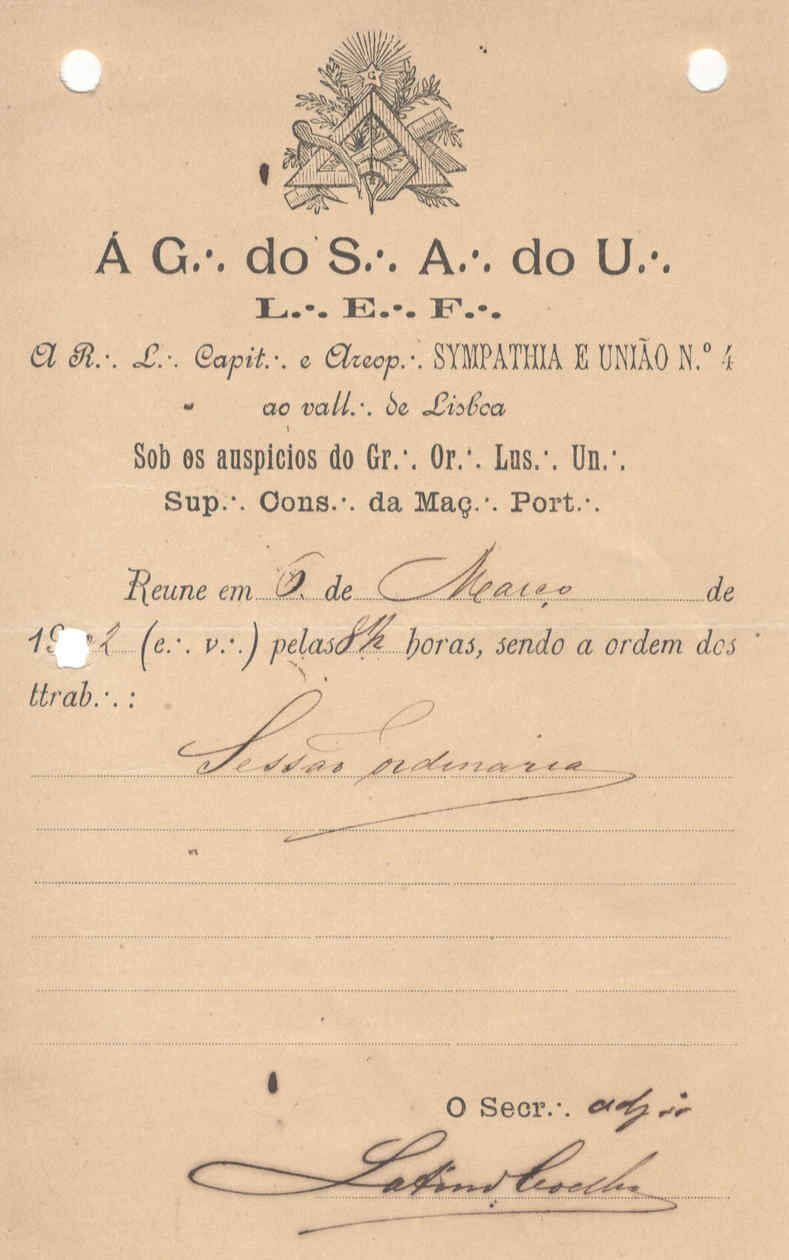 G
Á G.∴ do S.∴ A.∴ do U.∴
L.∴ E.∴ F.∴
A R.∴ L.∴ Capit.∴ e Areop.∴ SYMPATHIA E UNIÃO N.º 4
ao vall.∴ de Lisboa
Sob os auspicios do Gr.∴ Or.∴ Lus.∴ Un.∴
Sup.∴ Cons.∴ da Maç.∴ Port.∴
Reune em 6 de Março de
(e.∴ v.∴) pelas 8½ horas, sendo a ordem dos
ttrab.∴ :
Sessão ordinaria
O Secr.∴ adj.to
Latino Coelho